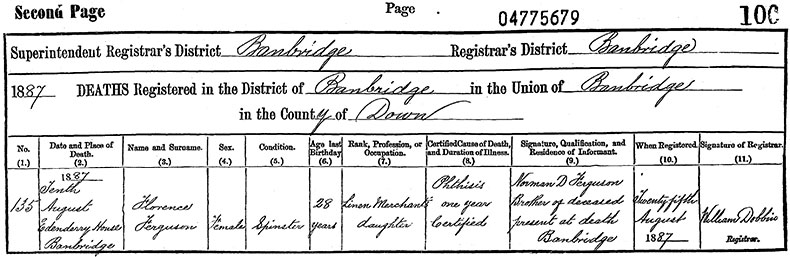 Second Page Page 04775679 100
Superintendent Registrar's District Banbridge Registrar's District Banbridge
1887 DEATHS Registered in the District of Banbridge in the Union of Banbridge
in the County of Down
No. Date and Place of Death. Name and Surname. Sex. Condition. Age last Birthday Rank, Profession, or Occupation. Certified Cause of Death, and Duration of Illness. Signature, Qualification, and Residence of Informant. When Registered. Signature of Registrar.
(1.) (2.) (3.) (4.) (5.) (6.) (7.) (8.) (9.) (10.) (11.)
1887
Tenth Phthisis Norman D Ferguson
135 August Florence 28 Linen Merchants one year Brother of deceased Twenty fifth
Edenderry House Ferguson Female Spinster years daughter Certified present at death August William Dobbin
Banbridge Banbridge 1887 Registrar.